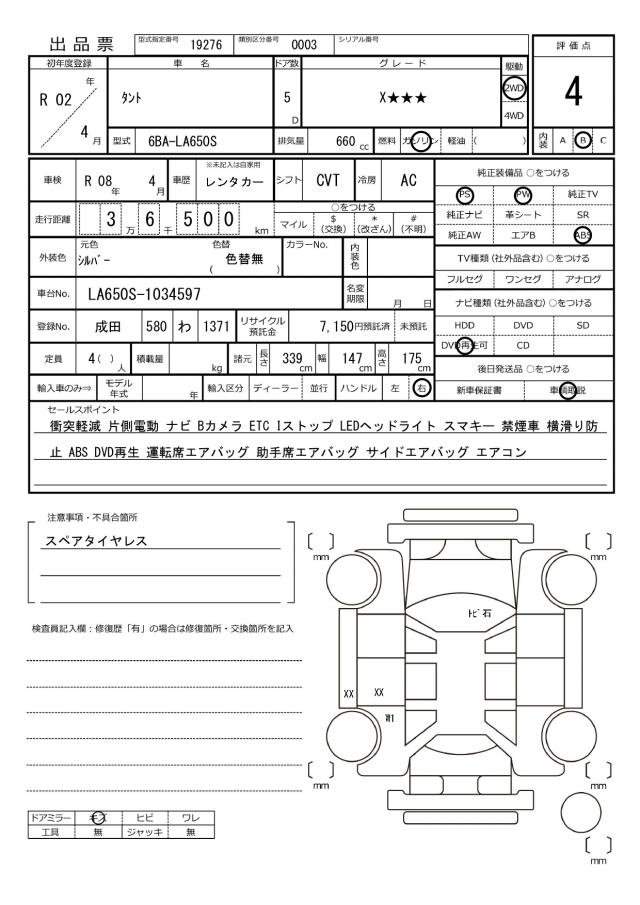 出品票 型式指定番号 19276 類別区分番号 0003 シリアル番号
評価点
初年度登録 車名 ドア数 グレード 駆動
R 02 年 4 月 タント 5 D X★★★ 2WD 4WD
4
型式 6BA-LA650S 排気量 660 cc 燃料 ガソリン 軽油 ( ) 内装 A B C
車検 R 08 年 4 月 車歴 ※未記入は自家用 レンタカー シフト CVT 冷房 AC
走行距離 3 6 万 千 5 0 0 km ○をつける
マイル $ (交換) * (改ざん) # (不明)
外装色 元色 シルバー 色替 ( 色替無 ) カラーNo. 内装色
車台No. LA650S-1034597 名変期限 月 日
登録No. 成田 580 わ 1371 リサイクル預託金 7,150円預託済 未預託
定員 4( ) 人 積載量 kg 諸元 長さ 339 cm 幅 147 cm 高さ 175 cm
輸入車のみ⇒ モデル年式 年 輸入区分 ディーラー 並行 ハンドル 左 右
純正装備品 ○をつける
PS PW 純正TV
純正ナビ 革シート SR
純正AW エアB ABS
TV種類(社外品含む) ○をつける
フルセグ ワンセグ アナログ
ナビ種類(社外品含む) ○をつける
HDD DVD SD
DVD再生可 CD
後日発送品 ○をつける
新車保証書 車輌取説
セールスポイント
衝突軽減 片側電動 ナビ Bカメラ ETC Iストップ LEDヘッドライト スマキー 禁煙車 横滑り防
止 ABS DVD再生 運転席エアバッグ 助手席エアバッグ サイドエアバッグ エアコン
注意事項・不具合箇所
スペアタイヤレス
検査員記入欄:修復歴「有」の場合は修復箇所・交換箇所を記入
〔 〕 mm
〔 〕 mm
トビ石
XX XX
〔 〕 mm
〔 〕 mm
〔 〕 mm
ドアミラー キズ ヒビ ワレ
工具 無 ジャッキ 無